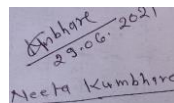 Kumbhare
29.06.2021
Neeta Kumbhare